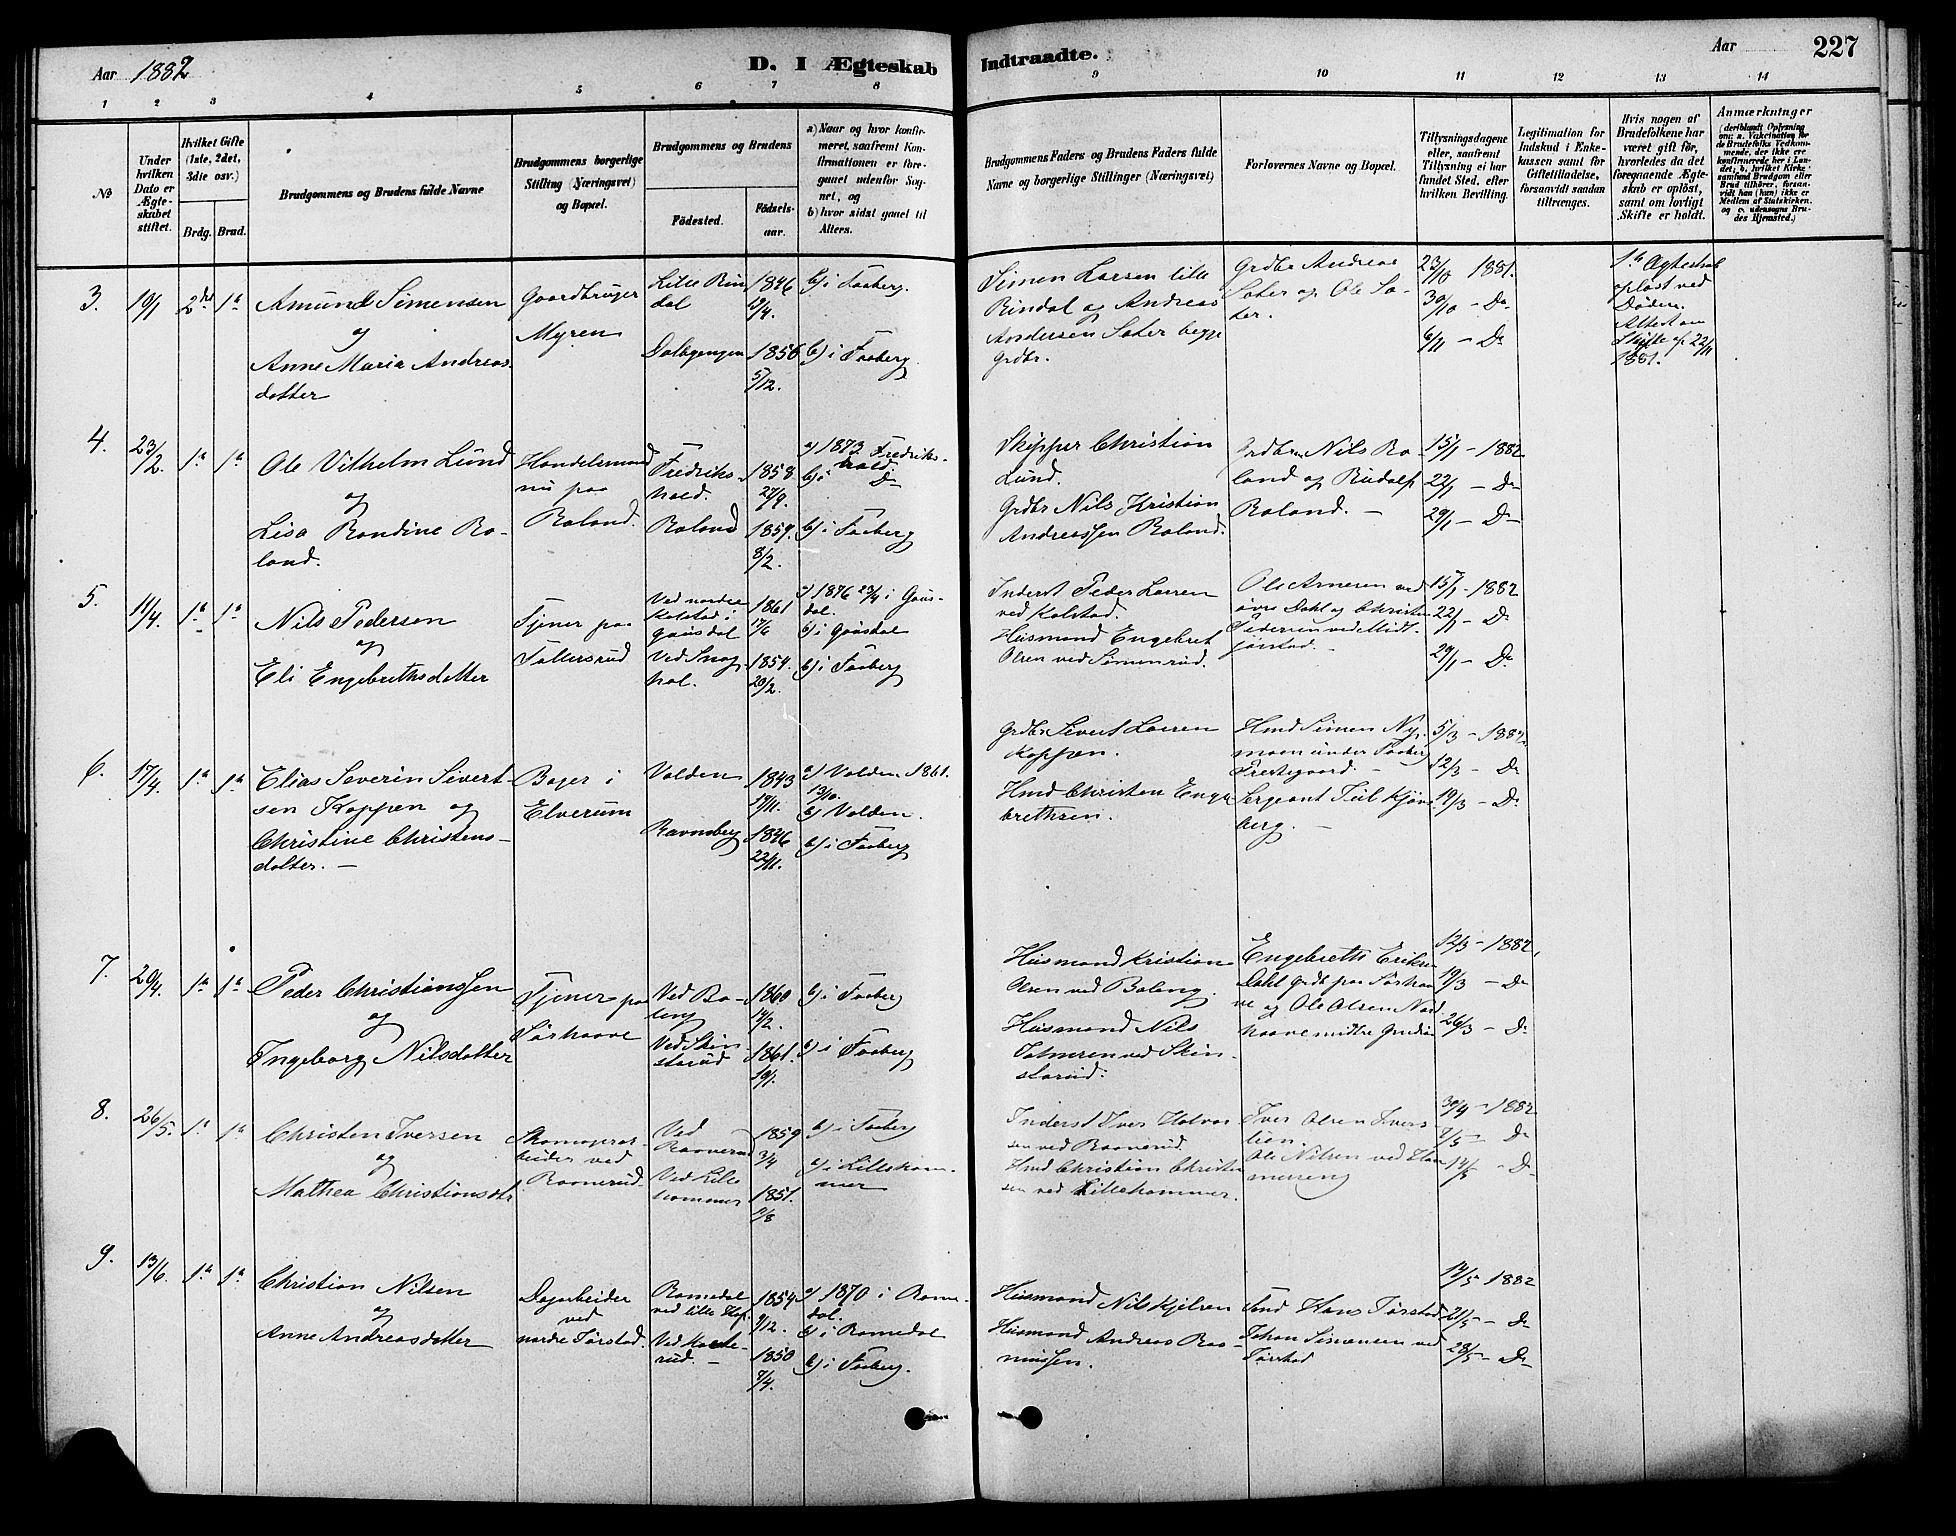 Aar 1882
D. I Ægteskab
Indtraadte.
Aar
227
1 2 3 4 5 6 7 8 9 10 11 12 13 14
No
Under hvilken Dato er Ægteskabet stiftet.
Hvilket Gifte (1ste, 2det, 3die osv.)
Brdg. Brud.
Brudgommens og Brudens fulde Navne
Brudgommens borgerlige Stilling (Næringsvei) og Bopæl.
Brudgommens og Brudens
Födested.
Födselsaar.
a) Naar og hvor konfirmeret, saafremt Konfirmationen er foregaaet udenfor Sognet, og
b) hvor sidst gaaet til Alters.
Brudgommens Faders og Brudens Faders fulde Navne og borgerlige Stillinger (Næringsvei)
Forlovernes Navne og Bopæl.
Tillysningsdagene eller, saafremt Tillysning ei har fundet Sted, efter hvilken Bevilling.
Legitimation for Indskud i Enkekassen samt for Giftetilladelse, forsaavidt saadan tiltrænges.
Hvis nogen af Brudefolkene har været gift før, hvorledes da det foregaaende Ægteskab er oplöst, samt om lovligt Skifte er holdt.
Anmærkninger
3. 19/1 2det 1te
Amund Simensen
og
Anne Maria Andreas
datter
Gaardbruger
Myren
Lille Rin
dal
Dalbgengen
1846
12/4.
1856
5/12.
b) i Faaberg.
b) i Faaberg.
Simen Larsen lille
Rindal og Andreas
Andersen Sater begge
Grdbr.
Grdbr Andreas
Sater og Ole Sa-
ter.
23/10 1881.
30/10 - Do
6/11 - Do
1te Ægteskab
opløst ved
Døden.
Attest om
Skifte af 22/11
1881.
4. 23/2. 1te 1te
Ole Vilhelm Lund
og
Lisa Randine Ro-
land.
Handelsmand
nu paa
Roland.
Fredriks
hald.
Roland
1858
27/9.
1859.
8/2.
a) 1873 Fredriks-
hald.
b) i Do
b) i Faaberg
Skipper Christian
Lund.
Grdbr Nils Kristian
Andreassen Roland.
Grdbr Nils Ro-
land og Rudolf
Roland. -
15/1 - 1882
22/1 - Do
29/1 - Do
5. 11/4. 1te 1te
Nils Pedersen
og
Eli Engebrethsdatter
Tjener paa
Følkersrud
Ved nordre
Kolstad i
Gausdal
Ved Snog
hol.
1861
17/6
1859.
20/2.
a) 1876 23/4 i Gaus-
dal.
b) i Gausdal
b) i Faaberg
Inderst Peder Larsen
ved Kolstad.
Husmand Engebret
Olsen ved Simenrud.
Ole Arnesen ved
øvre Dahl og Christen
Pedersen ved Midt-
jørstad. -
15/1 - 1882
22/1 - Do
29/1 - Do
6. 17/4. 1te 1te
Elias Severin Sivert
sen Koppen og
Christine Christens-
datter. -
Bager i
Elverum
Volden
Ravnsberg
1843
17/11.
1846
22/11.
a) Volden 1861.
13/10.
b) Volden.
b) i Faaberg
Grdbr Sivert Larsen
Koppen.
Hmd Christen Enge
brethsen.
Hmd Simen Ny-
moen under Faaberg
Prestegaard. -
Sergeant Juul Kjøns
berg. -
5/3 - 1882
12/3 - Do
19/3 - Do
7. 20/4. 1te 1te
Peder Christianssen
og
Ingeborg Nilsdatter
Tjener paa
Sørhaave
Ved Ba-
leng
Ved Skin-
starud
1860
14/2.
1861.
19/1.
b) i Faaberg
b) i Faaberg
Husmand Kristian
Olsen ved Baleng.
Husmand Nils
Johnsen ved Skin-
starud.
Engebreth Eriksen
Dahl Grdb paa Sørhaa
ve og Ole Olsen Nord
haave midtre
12/3 - 1882,
19/3 - Do
26/3 - Do
8. 26/5. 1te 1te
Christen Iversen
og
Mathea Christiansdtr
Skomagerar-
beider ved
Ravnerud.
Ved
Ravnerud
Ved Lille
hammer
1859
3/4
1851.
1/8
b) i Faaberg
b) i Lilleham-
mer
Inderst Iver Halvor
sen ved Ravnerud.
Hmd Christian Christen
sen ved Lillehammer.
Iver Olsen Ivers-
lien.
Ole Nilsen ved Ham
mereng
30/4 - 1882
7/5 - Do
14/5 - Do
9. 13/6. 1te 1te
Christian Nilsen
og
Anne Andreasdatter
Dagarbeider
ved
nordre Jørstad.
Romedal
ved lille Hof.
Ved Kalle-
rud. -
1854
9/12.
1850
9/4.
a) 1870 i Rome-
dal.
b) i Romedal
b) i Faaberg.
Husmand Nils Kjelsen
Husmand Andreas Ras-
mussen.
Hans Jørstad
Johan Simensen ved
Jørstad
14/5 - 1882
21/5 - Do
28/5 - Do